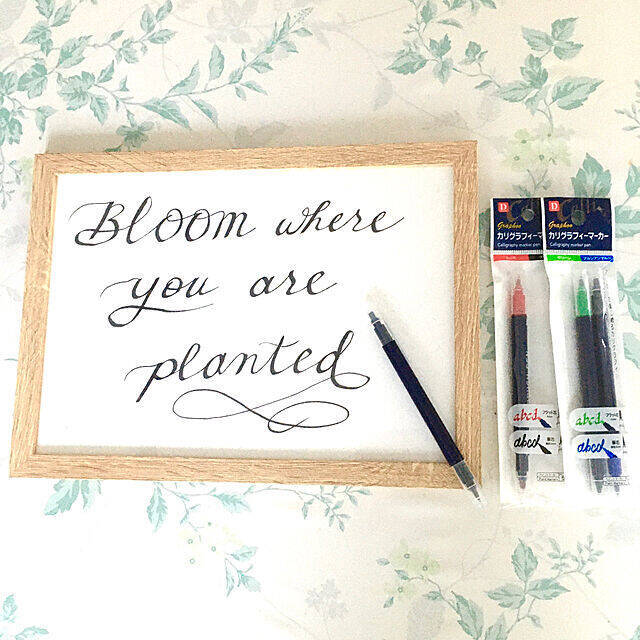 Bloom where
you are
planted
D
Graphoo
カリグラフィーマーカー
Calligraphy marker pen
abcd
フラット芯
abcd
筆芯
D
Graphoo
カリグラフィーマーカー
Calligraphy marker pen
abcd
フラット芯
abcd
筆芯